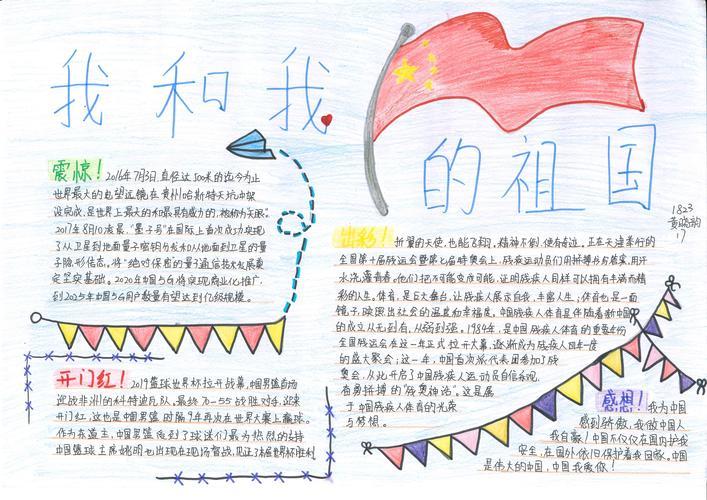 我和我
的祖国
1823
17
震惊！2016年7月3日,直径达500米的迄今为止
世界最大的电望远镜在贵州哈斯特天坑中架
设完成,是世界上最大的和最具有威力的,被称为“天眼”
2017年8月10发是,“量子号”在国际上首次成功实现
了从卫星到地面量子密钥分发和从地面到卫星的量
子隐形传态。将“绝对保密的量子通信技术发展奠
定坚实基础。2020年中国5G将实现商业化推广,
到2025年中国5G用户数量有望达到亿级规模。
开门红！2019篮球世界杯拉开战幕,中国男篮首场
迎战非洲的科特迪瓦队,最终70-55战胜对手,迎来
开门红,这也是中国男篮时隔9年再次在世界大赛上赢球。
作为东道主,中国男篮收到了球迷们最为热烈的支持
中国篮球主席姚明也出现在现场督战,见证了本届世界杯胜利
出彩！折翼的天使,也能飞翔,精神不倒,便有奇迹。正在天津举行的
全国第十届残运会暨第七届特奥会上,残疾运动员们用拼搏书写精采,用汗
水浇灌青春。他们把不可能变成可能,证明残疾人同样可以拥有丰满而精
彩的人生。体育,是巨大舞台,让残疾人展示自我,丰富人生;体育也是一面
镜子,映照出社会的温度和幸福度。中国残疾人体育是伴随着新中国
的成立从无到有,从弱到强。1984年,是中国残疾人体育的重要年份
全国残运会在这一年正式拉开大幕,逐渐成为残疾人四年一度
的盛大聚会;这一年,中国首次派代表团参加了残
奥会,从此开启了中国残疾人运动员自信乐观,
有勇拼搏的“残奥神话”。这是属
于中国残疾人体育的光荣
与梦想。
感想！我为中国
感到骄傲,我做中国人
我自豪！中国不仅仅在国内护我
安全,在国外依旧保护着我回家。中国
是伟大的中国,中国我爱你！